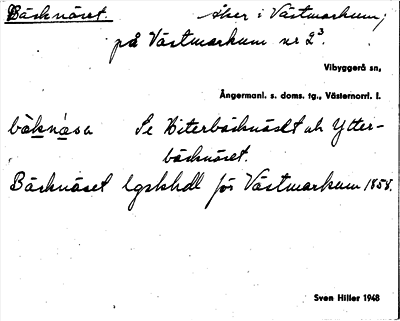 Bäcknäset. åker i Västmarkum,
på Västmarkum nr 2³.
Vibyggerå sn,
Ångermanl. s. doms. tg., Västernorrl. l.
bäknäsa Se Hiterbäcknäset och Ytter-
bäcknäset.
Bäcknäset lgskhdl för Västmarkum 1858.
Sven Hiller 1948